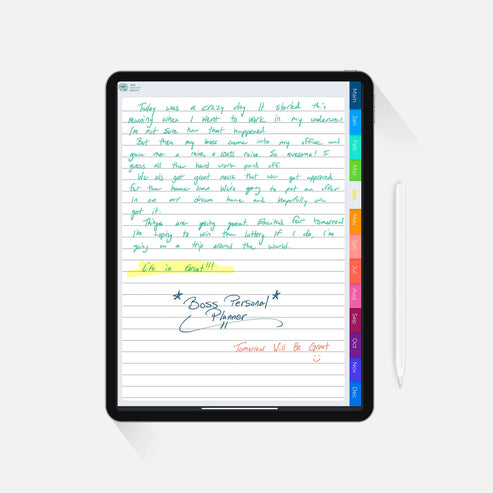 Today was a crazy day. It started this
morning when I went to work in my underwear.
I'm not sure how that happened.
But then my boss came into my office and
gave me a raise, a 100% raise. So awesome! I
guess all the hard work paid off.
We also got great news that we got approved
for the home loan. We're going to put an offer
in on our dream home and hopefully we
get it.
Things are going great. Excited for tomorrow
I'm hoping to win the lottery. If I do, I'm
going on a trip around the world.
Life is Great!!!
*Boss Personal*
Planner
Tomorrow Will Be Great
Main
Jan
Feb
Mar
Apr
May
Jun
Jul
Aug
Sep
Oct
Nov
Dec